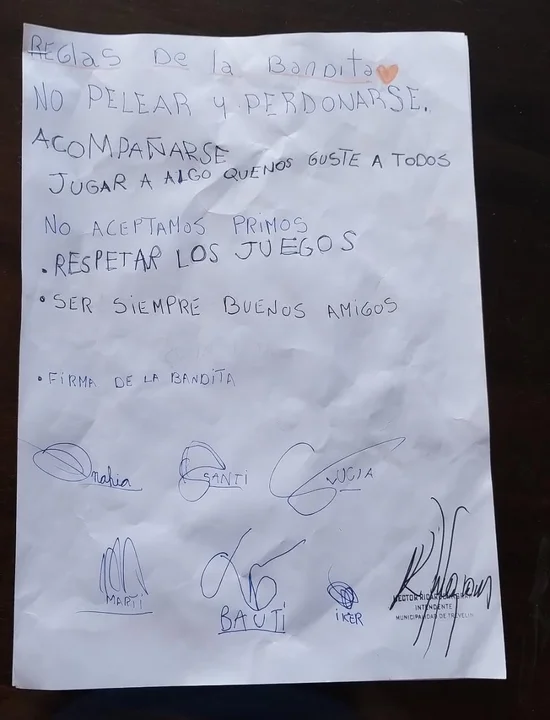 REGlas De la Bandita
NO PELEAR y PERDONARSE.
ACOMPAÑARSE
JUGAR A ALGO QUENOS GUSTE A TODOS
NO ACEPTAMOS PRIMOS
. RESPETAR LOS JUEGOS
• SER SIEMPRE BUENOS AMIGOS
• FIRMA DE LA BANDITA
nahia SANTI LUCIA
MARTI BAUTI IKER
INTENDENTE
MUNICIPALIDAD DE TREVELIN